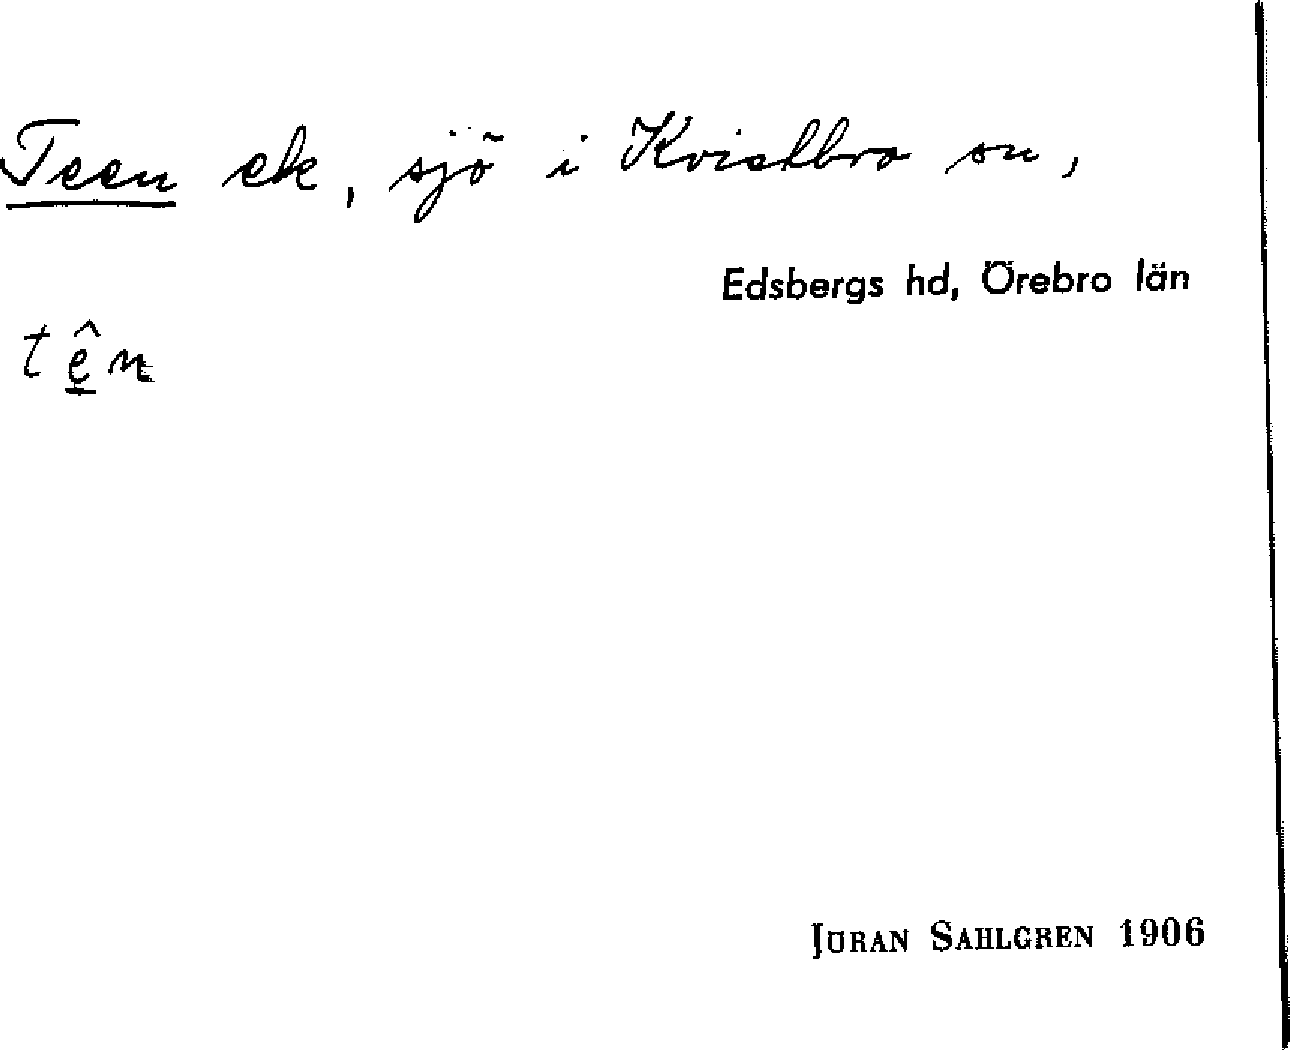 Teen ek, sjö i Kvistbro sn,
Edsbergs hd, Örebro län
tê̱n
JÖRAN SAHLGREN 1906